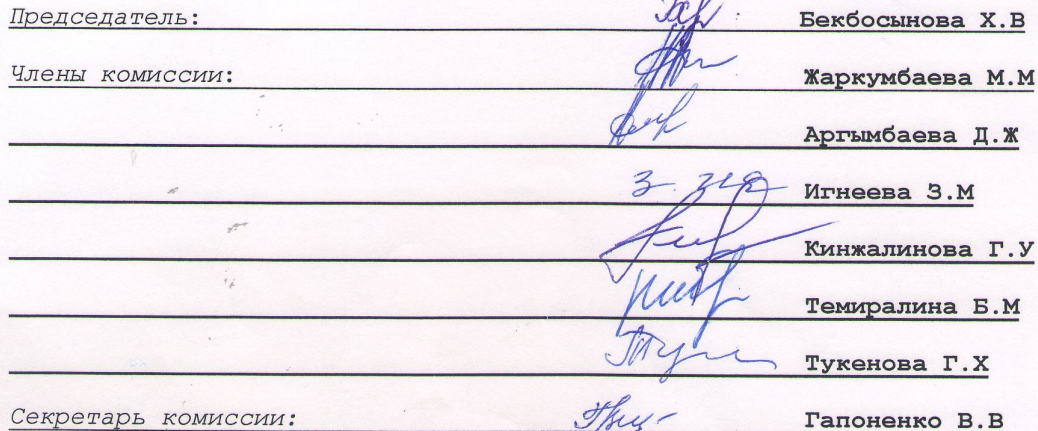 Председатель: Бекбосынова Х.В
Члены комиссии: Жаркумбаева М.М
Аргымбаева Д.Ж
Игнеева З.М
Кинжалинова Г.У
Темиралина Б.М
Тукенова Г.Х
Секретарь комиссии: Гапоненко В.В